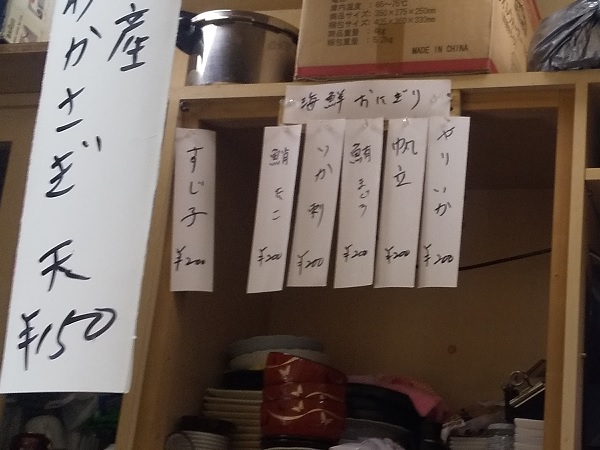 産
わかさぎ 天
¥150
海鮮おにぎり
やりいか
¥200
帆立
¥200
鮪まぐろ
¥200
いか刺
¥200
¥200
すじ子
¥200
MADE IN CHINA